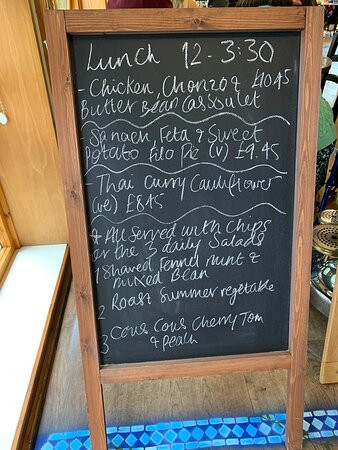 Lunch 12-3:30
- Chicken, Chorizo & £10.45
Butter Bean Cassoulet
Spinach, Feta & Sweet
Potato Filo Pie (v) £9.45
- Thai Curry Cauliflower
(ve) £8.45
* All Served with Chips
or the 3 daily Salads
1 Shaved Fennel mint &
mixed Bean
2 Roast Summer vegetable
3 Cous Cous Cherry Tom
& peach